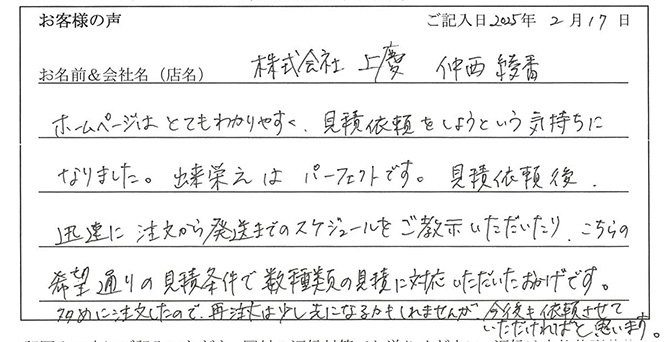 お客様の声 ご記入日 2025年 2月 17日
お名前&会社名(店名) 株式会社 上慶 仲西 綾香
ホームページはとてもわかりやすく、見積依頼をしようという気持ちに
なりました。出来栄えは パーフェクトです。見積依頼後、
迅速に注文から発送までのスケジュールをご教示いただいたり、こちらの
希望通りの見積条件で数種類の見積に対応いただいたおかげです。
多めに注文したので、再注文は少し先になるかもしれませんが、今後も依頼させて
いただければと思います。